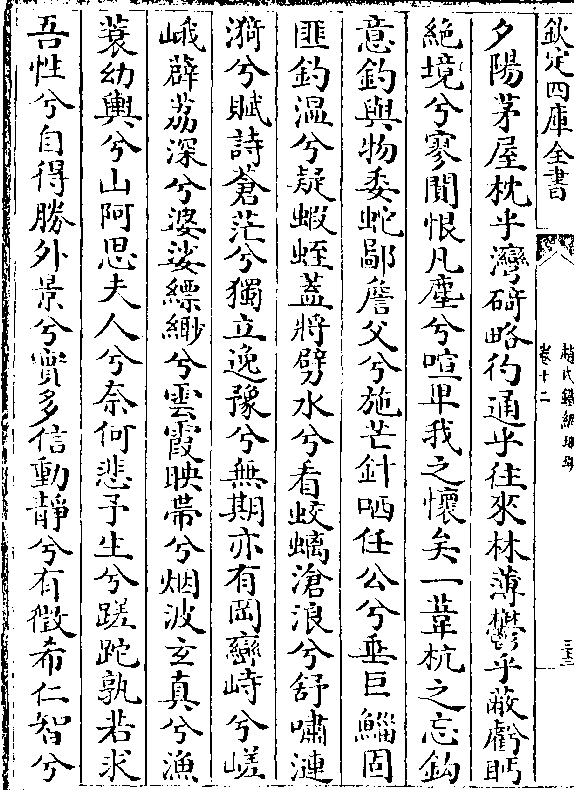 欽定四庫全書
趙氏鐵網珊瑚
卷十二
三三
夕陽茅屋枕乎灣碕略彴通乎往來林薄鬱乎蔽虧眄
絶境兮寥閴恨凡塵兮喧卑我之懷矣一葦杭之忘鈎
意釣與物委蛇鄙詹父兮施芒針哂任公兮垂巨鯔固
匪釣溫兮疑蝦蛭蓋將劈水兮看蛟螭滄浪兮舒嘯漣
漪兮賦詩蒼茫兮獨立逸豫兮無期亦有岡巒峙兮嵯
峨薜荔深兮婆娑縹緲兮雲霞映帶兮烟波玄真兮漁
蓑幼輿兮山阿思夫人兮奈何悲予生兮蹉跎孰若求
吾性兮自得勝外景兮實多信動靜兮有徵希仁智兮